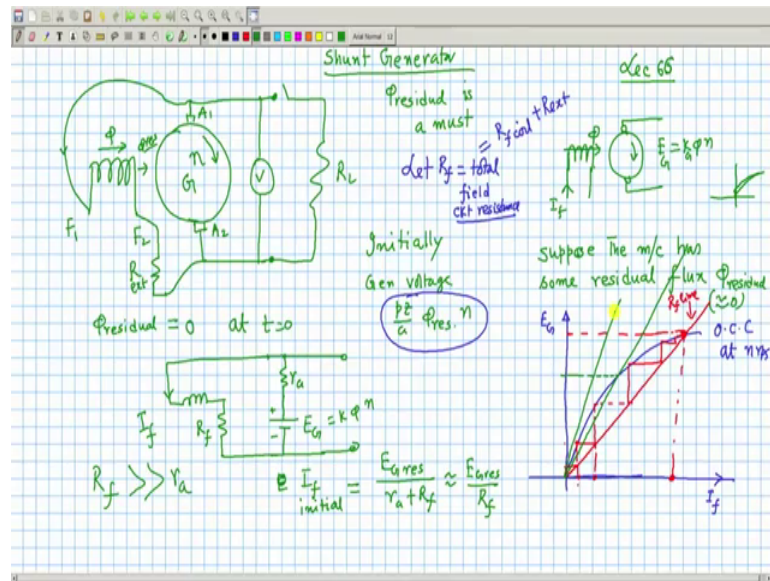 Arial Normal 12
Shunt Generator
Lec 66
Φresidual is
a must
= Rf coil + Rext
Let Rf = total
field
ckt resistance
A1
Φ
Φres
n
G
V
RL
F1
F2
A2
Rext
Φ
EG = kaΦn
If
Initially
Gen voltage
pz/a Φres. n
suppose the m/c has
some residual flux Φresidual
(≈0)
Rf line
EG
O.C.C
at n rps
If
Φresidual = 0 at t=0
ra
If
Rf
+
-
EG = kΦn
Rf >> ra
If initial = EGres/(ra + Rf) ≈ EGres/Rf